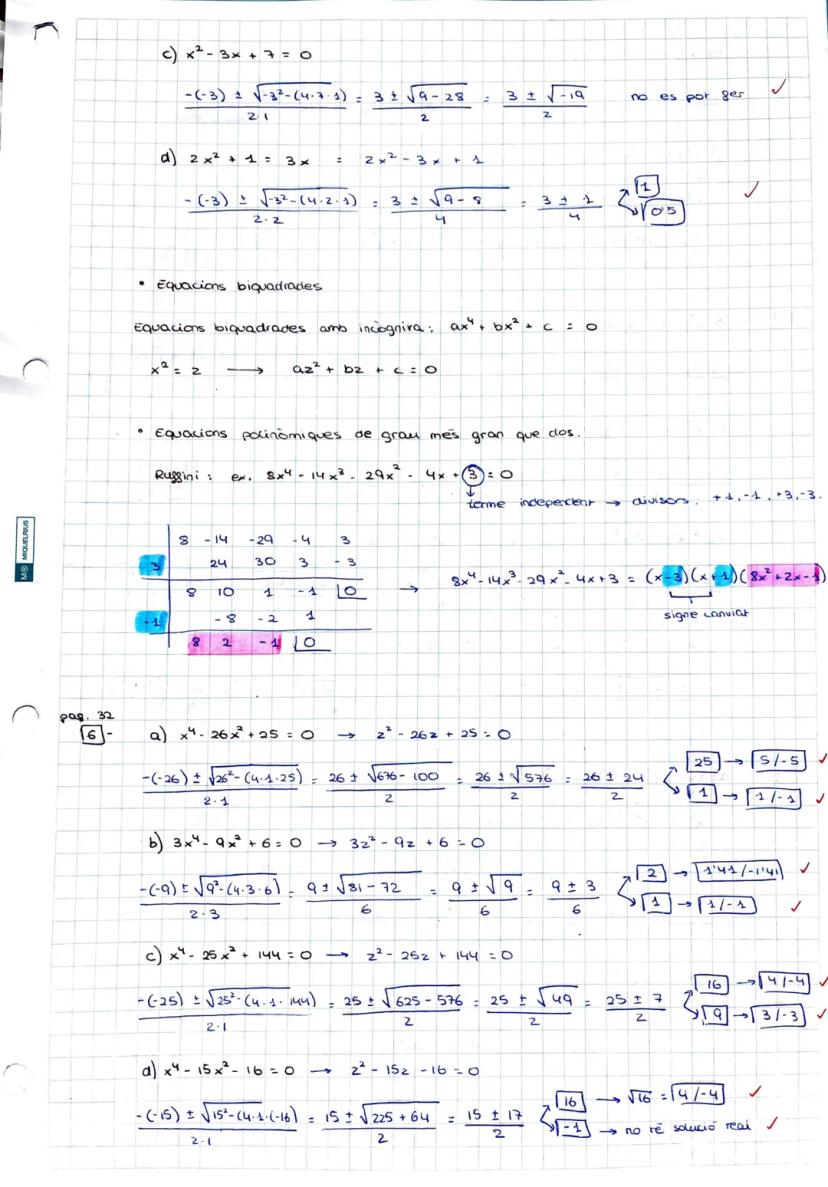 c) x² - 3x + 7 = 0
-(-3) ± √-3²-(4·7·1) / 2·1 = 3 ± √9-28 / 2 = 3 ± √-19 / 2 no es pot fer ✓
d) 2x² + 1 = 3x = 2x² - 3x + 1
-(-3) ± √-3²-(4·2·1) / 2·2 = 3 ± √9-8 / 4 = 3 ± 1 / 4 1 0'5 ✓
• Equacions biquadrades
Equacions biquadrades amb incògnita: ax⁴ + bx² + c = 0
x² = z → az² + bz + c = 0
• Equacions polinòmiques de grau més gran que dos.
Ruffini: ex. 8x⁴ - 14x³ - 29x² - 4x + 3 = 0
terme independent → divisors: +1, -1, +3, -3.
8 -14 -29 -4 3
3 24 30 3 -3
8 10 1 -1 0 → 8x⁴ - 14x³ - 29x² - 4x + 3 = (x-3)(x+1)(8x²+2x-1)
signe canviat
-1 -8 -2 1
8 2 -1 0
MR MIQUELRIUS
pag. 32
6 - a) x⁴ - 26x² + 25 = 0 → z² - 26z + 25 = 0
-(-26) ± √26²-(4·1·25) / 2·1 = 26 ± √676-100 / 2 = 26 ± √576 / 2 = 26 ± 24 / 2 25 → 5/-5 ✓ 1 → 1/-1 ✓
b) 3x⁴ - 9x² + 6 = 0 → 3z² - 9z + 6 = 0
-(-9) ± √9²-(4·3·6) / 2·3 = 9 ± √81-72 / 6 = 9 ± √9 / 6 = 9 ± 3 / 6 2 → 1'41/-1'41 ✓ 1 → 1/-1 ✓
c) x⁴ - 25x² + 144 = 0 → z² - 25z + 144 = 0
-(-25) ± √25²-(4·1·144) / 2·1 = 25 ± √625-576 / 2 = 25 ± √49 / 2 = 25 ± 7 / 2 16 → 4/-4 ✓ 9 → 3/-3 ✓
d) x⁴ - 15x² - 16 = 0 → z² - 15z - 16 = 0
-(-15) ± √15²-(4·1·(-16) / 2·1 = 15 ± √225+64 / 2 = 15 ± 17 / 2 16 → √16 = 4/-4 ✓ -1 → no té solució real ✓